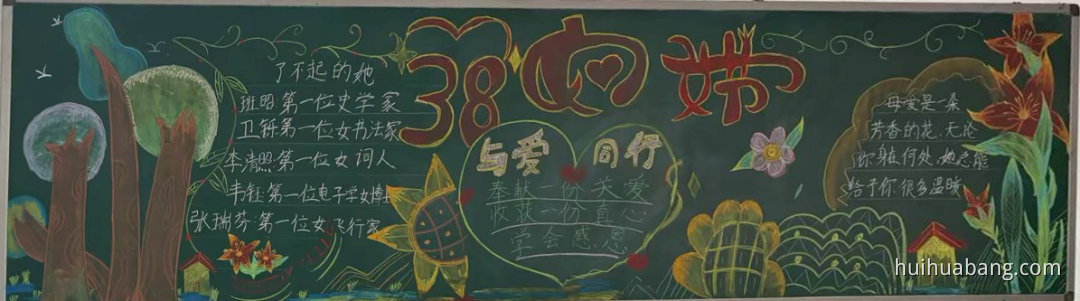 38如她
了不起的她
班昭·第一位史学家
卫铄·第一位女书法家
李清照·第一位女词人
韦钰·第一位电子学女博士
张瑞芬·第一位女飞行家
与爱同行
奉献一份关爱
收获一份真心
学会感恩
母爱是一朵
芳香的花,无论
你身在何处,她总能
给予你很多温暖
huihuabang.com